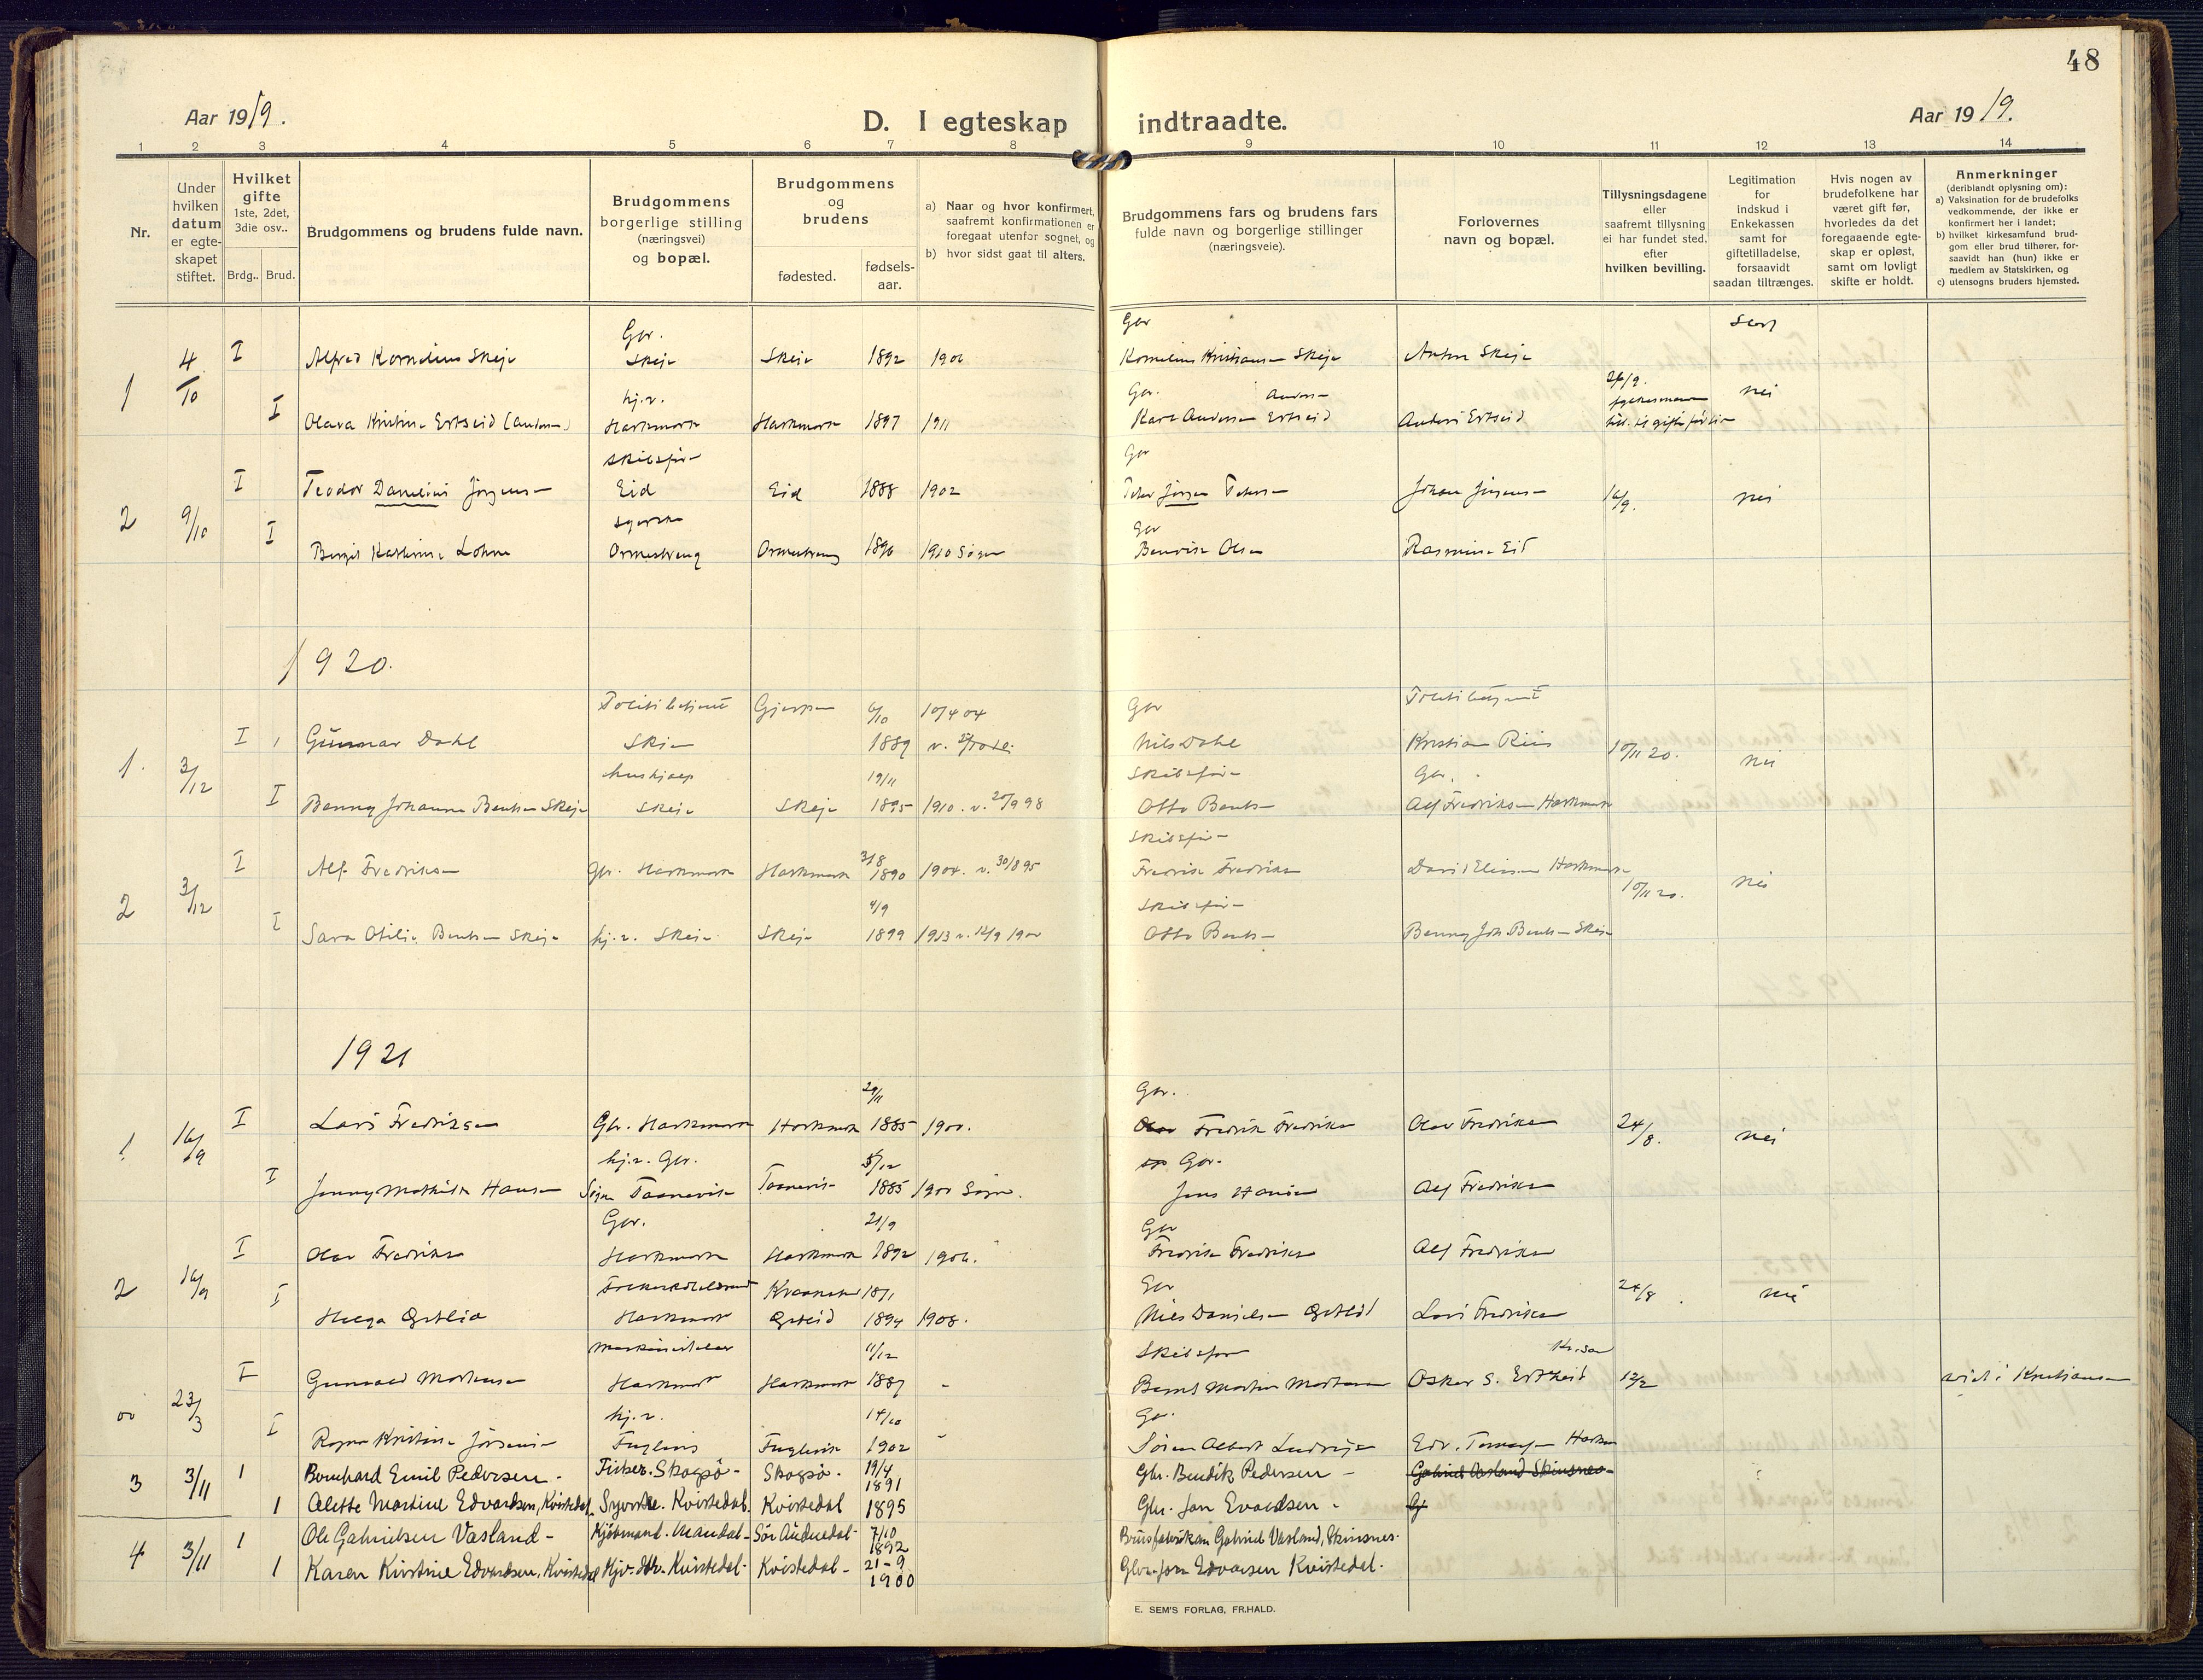 48
Aar 1919.
D. I egteskap indtraadte.
Aar 1919.
1 2 3 4 5 6 7 8 9 10 11 12 13 14
Nr.
Under hvilken datum er egteskapet stiftet.
Hvilket gifte 1ste, 2det, 3die osv..
Brdg.. Brud.
Brudgommens og brudens fulde navn.
Brudgommens borgerlige stilling (næringsvei) og bopæl.
Brudgommens og brudens
fødested.
fødsels-aar.
a) Naar og hvor konfirmert, saafremt konfirmationen er foregaat utenfor sognet, og
b) hvor sidst gaat til alters.
Brudgommens fars og brudens fars fulde navn og borgerlige stillinger (næringsveie).
Forlovernes navn og bopæl.
Tillysningsdagene eller saafremt tillysning ei har fundet sted, efter hvilken bevilling.
Legitimation for indskud i Enkekassen samt for giftetilladelse, forsaavidt saadan tiltrænges.
Hvis nogen av brudefolkene har været gift før, hvorledes da det foregaaende egteskap er opløst, samt om lovligt skifte er holdt.
Anmerkninger (deriblandt oplysning om):
a) Vaksination for de brudefolks vedkommende, der ikke er konfirmert her i landet;
b) hvilket kirkesamfund brudgom eller brud tilhører, forsaavidt han (hun) ikke er medlem av Statskirken, og
c) utensogns bruders hjemsted.
Gbr. Gbr
1 4/10 I Alfred Kornelius Skeje Skeje Skeje 1892 1906 Kornelius Kristiansen Skeje Anton Skeje
hj.v. Gbr. 26/9. nei
I Olava Kristine Ertseid Harkmark Harkmark 1897 1911 Karl Andersen Ertseid Anders Ertseid
Skibsfør Gbr
2 9/10 I Teodor Danelius Jørgensen Eid Eid 1888 1902 Peter Jørgen Petersen Johan Jørgensen 16/9. nei
syerske Gbr
I Bergit Katrine Lohne Ormestrøng Ormestrøng 1890 1910 Søgne Olsen Rasmine Eid
1920.
Politibetjent Gjerpen 6/10 10/4 04 Gbr Politibetjent
1. 3/12 I Gunnar Dahl Skien 1889 Nils Dahl Kristian Riis 10/11 20. nei
hushjælp 19/11 Skibsfør Gbr.
I Benny Johanne Bentsen Skeje Skeje Skeje 1895 1910. v. 20/9 98 Otto Bentsen Alf Fredriksen Harkmark
Skibsfør
2 3/12 I Alf Fredriksen Gbr. Harkmark Harkmark 31/8 1890 1904. v. 30/8 95 Fredrik Fredriksen David Eliassen Harkmark 10/11 20. nei
4/9 Skibsfør
I Sara Otilie Bentsen Skeje hj.v. Skeje Skeje 1899 1913 v. 12/9 1900 Otto Bentsen Benny Joh. Bentsen Skeje
1921
29/11 Gbr.
1 16/9 I Lars Fredriksen Gbr. Harkmark Harkmark 1885 1900. Fredrik Fredriksen Olav Fredriksen 24/8. nei
hj.v. Gbr. 5/12 Gbr.
I Jenny Mathilde Hansen Søgne Taanevik Taanevik 1885 1900 Søgne. Jens Hansen Alf Fredriksen
Gbr. 21/9 Gbr
2 16/9 I Olav Fredriksen Harkmark Harkmark 1892 1906. Fredrik Fredriksen Alf Fredriksen
18/1 Gbr 24/8. nei
I Helga Harkmark 1894 1908. Nils Danielsen Lars Fredriksen
11/12 Skibsfør
23/3 I Gunvald Mortensen Harkmark Harkmark 1889 - Bernt Martin Mortensen Oskar S. Ertseid 12/2 viet i Kristiansand
hj.v. 14/10 Gbr.
I Ragna Kristine Jørgensen Fuglevik Fuglevik 1902 - Søren Albert Ludvigsen
3 3/11 1 Bernhard Emil Pedersen - Fisker. Skogsø - Skogsø. 19/4 1891 Gbr. Bendik Pedersen - Gabriel Vasland Skinsnes
1 Alette Martine Edvardsen, Kvistedal. Syerske. Kvistedal. Kvistedal 1895 Gbr. Jon Evardsen.
4 3/11 1 Ole Gabrielsen Vasland - Kjøbmand. Mandal - Sør Audnedal - 7/10 1892 Brusfabrikan Gabriel Vasland, Skinsnes.
1 Karen Kirstine Edvardsen, Kvistedal Hjv. Dtr. Kvistedal - Kvistedal - 21-9 1900 Gbr. Jon Edvarsen Kvistedal.
E. SEM'S FORLAG, FR.HALD.